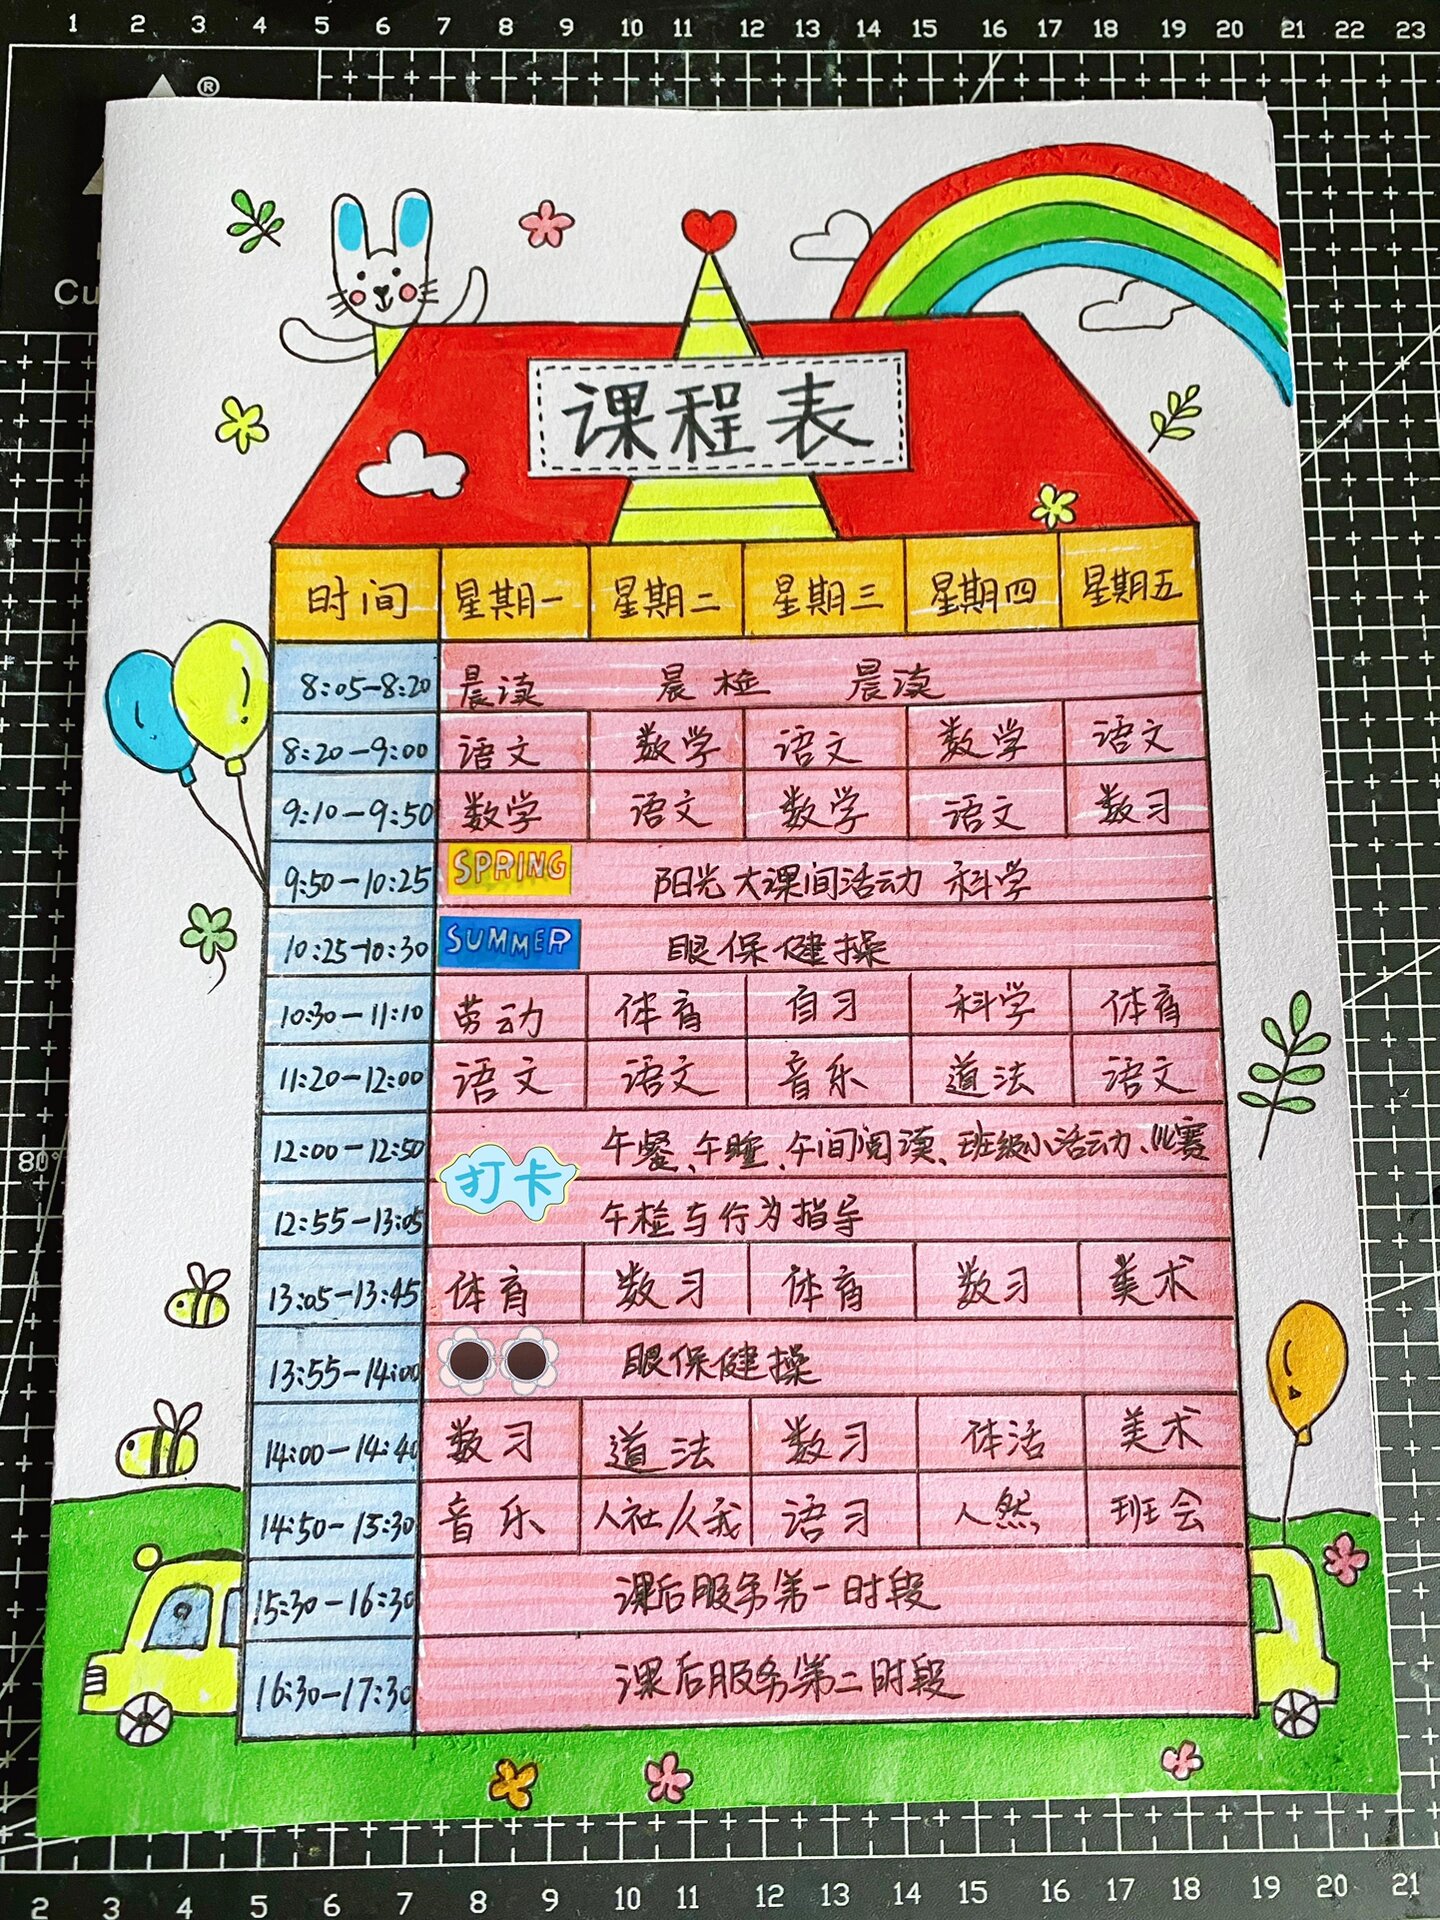 1 2 3 4 5 6 7 8 9 10 11 12 13 14 15 16 17 18 19 20 21 22 23
®
Cu
课程表
时间 星期一 星期二 星期三 星期四 星期五
8:05-8:20 晨读 晨检 晨读
8:20-9:00 语文 数学 语文 数学 语文
9:10-9:50 数学 语文 数学 语文 数习
9:50-10:25 SPRING 阳光大课间活动 科学
10:25-10:30 SUMMER 眼保健操
10:30-11:10 劳动 体育 自习 科学 体育
11:20-12:00 语文 语文 音乐 道法 语文
12:00-12:50 午餐、午睡、午间阅读、班级小活动、比赛
打卡
12:55-13:05 午检与行为指导
13:05-13:45 体育 数习 体育 数习 美术
13:55-14:00 眼保健操
14:00-14:40 数习 道法 数习 体活 美术
14:50-15:30 音乐 人社/人我 语习 人然 班会
15:30-16:30 课后服务第一时段
16:30-17:30 课后服务第二时段
80°
2 3 4 5 6 7 8 9 10 11 12 13 14 15 16 17 18 19 20 21